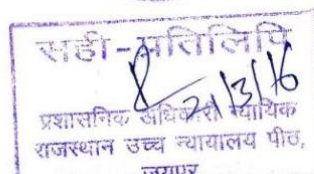 सही-प्रतिलिपि
21/3/16
प्रशासनिक अधिकारी न्यायिक
राजस्थान उच्च न्यायालय पीठ,
जयपुर